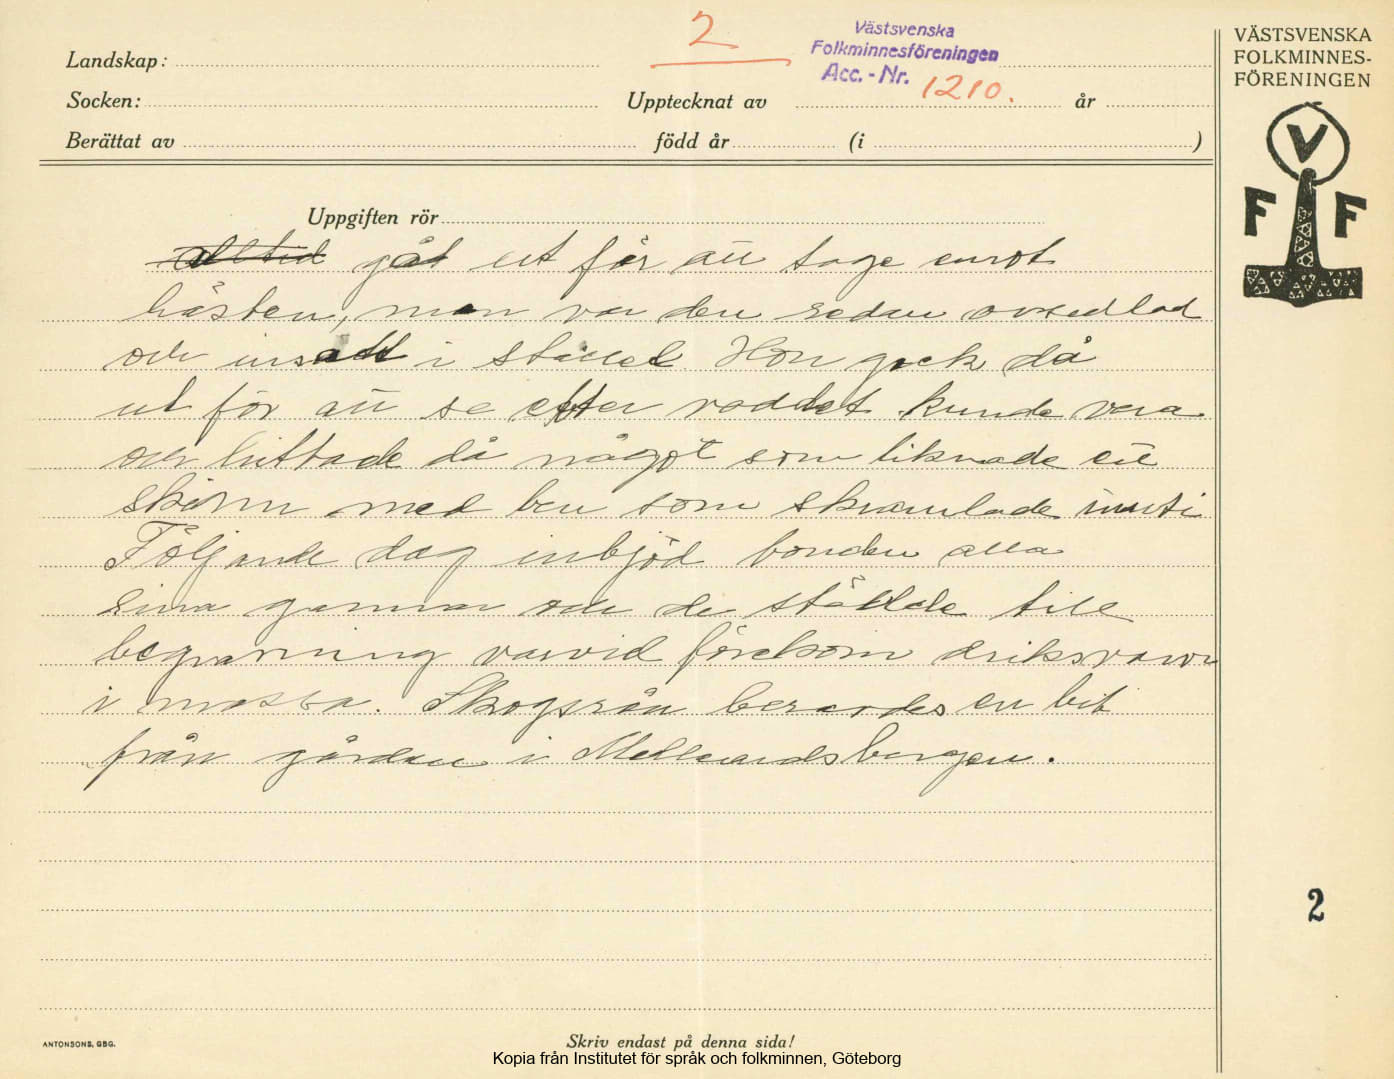 2
Västsvenska
Folkminnesföreningen
Acc.-Nr. 1210.
VÄSTSVENSKA
FOLKMINNES-
FÖRENINGEN
V
F F
Landskap:
Socken: Upptecknat av år
Berättat av född år (i )
Uppgiften rör
alltid gåt ut för att tage emot
hästen, men var den redan avsedlad
och insatt i stallet. Hon gick då
ut för att se efter vad det kunde vara
och hittade då något som liknade ett
skinn med ben som skramlade inuti
Följande dag inbjöd bonden alla
sina grannar och de stälde till
begravning varvid förekom drikvaror
i massa. Skogsrån berades en bit
från gården i
2
ANTONSONS, GBG.
Skriv endast på denna sida!
Kopia från Institutet för språk och folkminnen, Göteborg